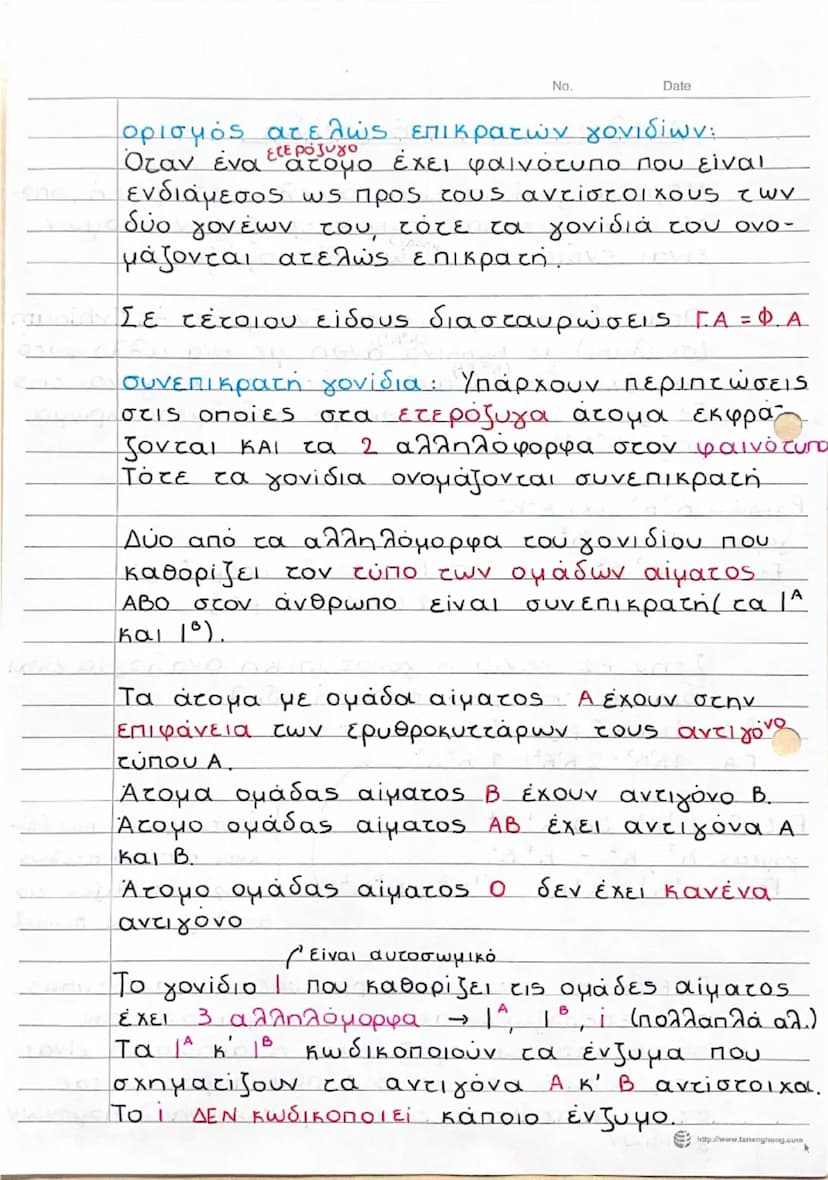 No. Date
ορισμός ατελώς επικρατών γονιδίων:
ετερόζυγο
Όταν ένα άτομο έχει φαινότυπο που είναι
ενδιάμεσος ως προς τους αντίστοιχους των
δύο γονέων του, τότε τα γονίδιά του ονο-
μάζονται ατελώς επικρατή.
Σε τέτοιου είδους διασταυρώσεις Γ.Α = Φ.Α
συνεπικρατή γονίδια: Υπάρχουν περιπτώσεις
στις οποίες στα ετερόζυγα άτομα εκφρά-
ζονται ΚΑΙ τα 2 αλληλόφορφα στον φαινότυπο
Τότε τα γονίδια ονομάζονται συνεπικρατή
Δύο από τα αλληλόμορφα του γονιδίου που
καθορίζει τον τύπο των ομάδων αίματος
ΑΒΟ στον άνθρωπο είναι συνεπικρατή( τα Ιᴬ
και Ιᴮ).
Τα άτομα με ομάδα αίματος Α έχουν στην
επιφάνεια των ερυθροκυττάρων τους αντιγόνο
τύπου Α.
Άτομα ομάδας αίματος Β έχουν αντιγόνο Β.
Άτομο ομάδας αίματος ΑΒ έχει αντιγόνα Α
και Β.
Άτομο ομάδας αίματος Ο δεν έχει κανένα
αντιγόνο
Είναι αυτοσωμικό
Το γονίδιο Ι που καθορίζει τις ομάδες αίματος
έχει 3 αλληλόμορφα → Ιᴬ, Ιᴮ, i (πολλαπλά αλ.)
Τα Ιᴬ κ' Ιᴮ κωδικοποιούν τα ένζυμα που
σχηματίζουν τα αντιγόνα Α κ' Β αντίστοιχα.
Το i ΔΕΝ κωδικοποιεί κάποιο ένζυμο.